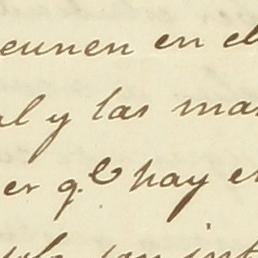 eunen en el
al y las mas
er q.e hay en